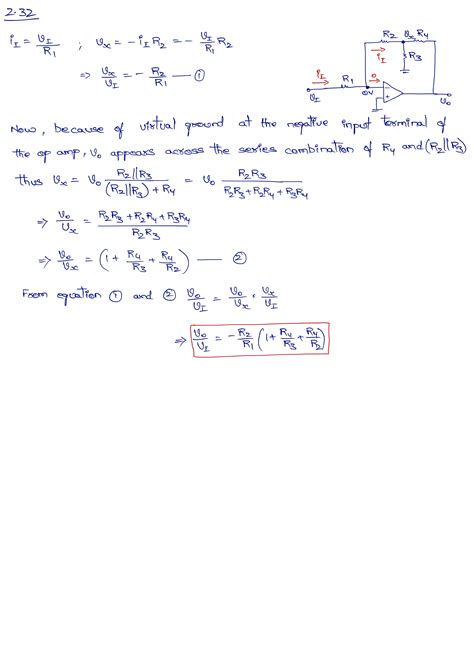 2.32
i_I = υ_I/R_1 ; υ_x = -i_I R_2 = - υ_I/R_1 R_2
⇒ υ_x/υ_I = - R_2/R_1 —— ①
R_2 υ_x R_4
i_I
R_3
i_I R_1 0
υ_I 0V - + υ_o
Now, because of virtual ground at the negative input terminal of
the op amp, υ_o appears across the series combination of R_4 and (R_2||R_3)
thus υ_x = υ_o R_2||R_3/((R_2||R_3) + R_4) = υ_o R_2R_3/(R_2R_3+R_2R_4+R_3R_4)
⇒ υ_o/υ_x = (R_2R_3+R_2R_4+R_3R_4)/(R_2R_3)
⇒ υ_o/υ_x = (1 + R_4/R_3 + R_4/R_2) —— ②
From equation ① and ② υ_o/υ_I = υ_o/υ_x · υ_x/υ_I
⇒ υ_o/υ_I = - R_2/R_1 (1 + R_4/R_3 + R_4/R_2)